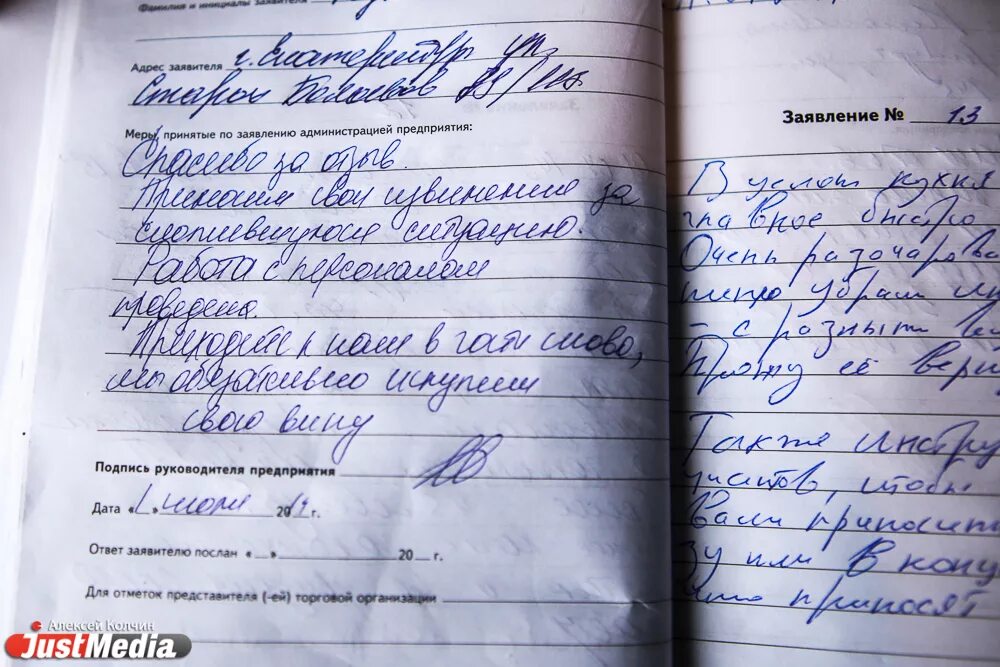 Фамилия и инициалы заявителя
Адрес заявителя г. Екатеринбург ул.
Старых Большевиков
Меры, принятые по заявлению администрацией предприятия:
Спасибо за отзыв.
Приносим свои извинения за
сложившуюся ситуацию.
Работа с персоналом
проведена.
Приходите к нам в гости снова,
мы обязательно искупим
свою вину
Подпись руководителя предприятия
Дата «1» июля 2014 г.
Ответ заявителю послан «__» 20__ г.
Для отметок представителя (-ей) торговой организации
Заявление № 13
кухня
главное быстро
Очень разочарова
убрали
- с разными
Прошу её верн
Также инстру
чтобы
Вам приносит
или в конц
приносят
Алексей Колчин
JustMedia